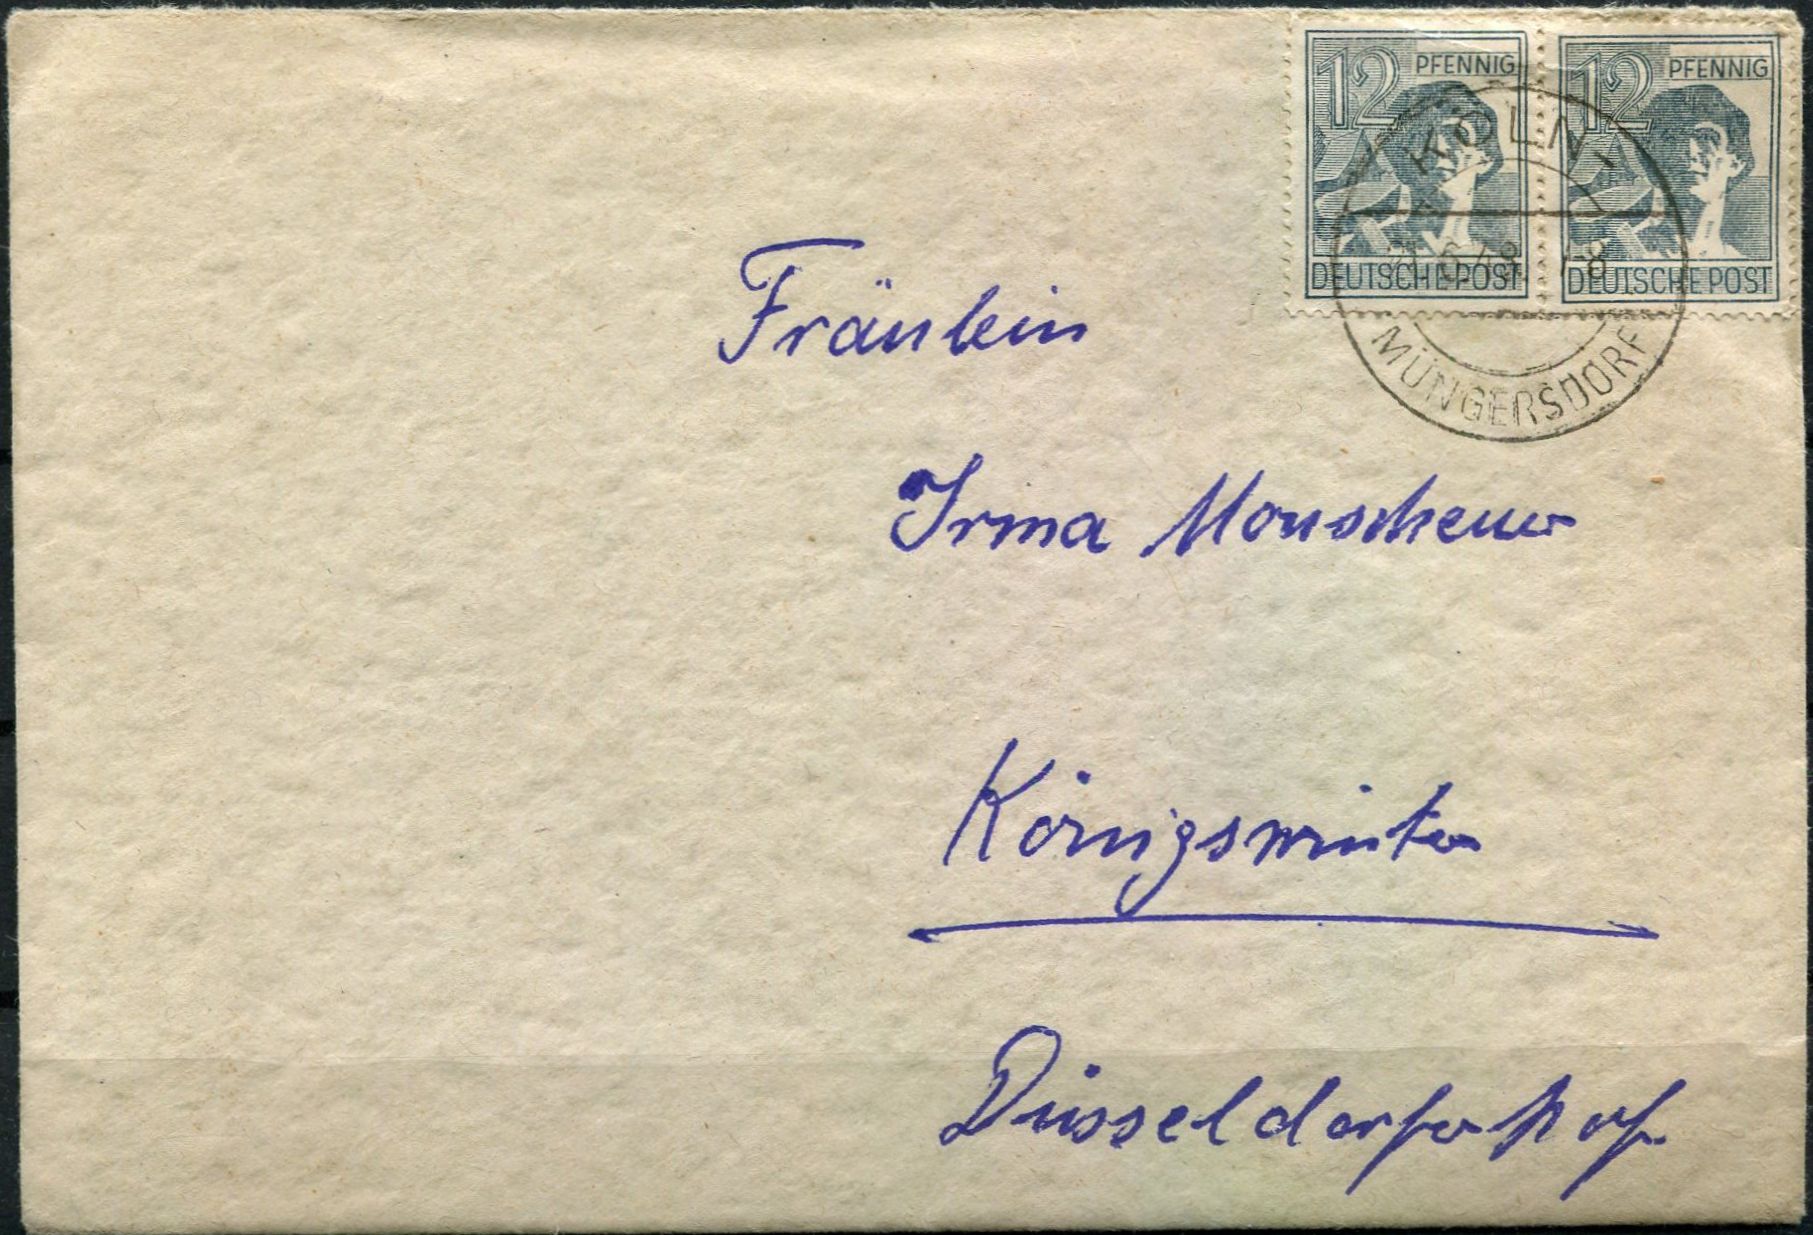 12 PFENNIG
DEUTSCHE POST
12 PFENNIG
DEUTSCHE POST
KÖLN-
6.48
-8
MÜNGERSDORF
Fräulein
Irma Monscheuer
Königswinter
Düsseldorferhof